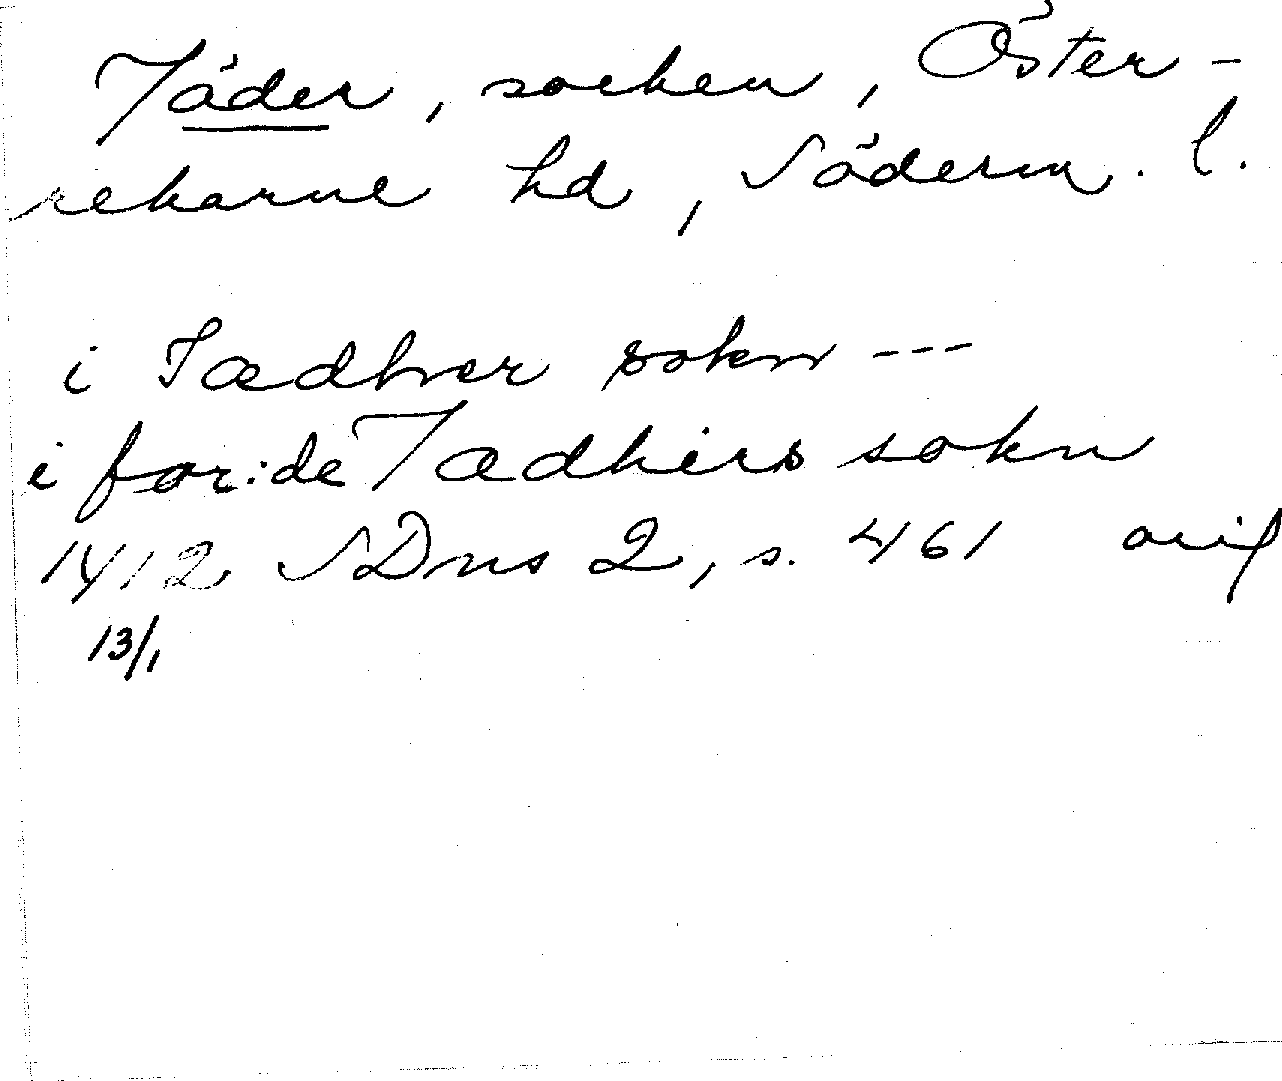 Jäder, socken, Öster-
rekarne hd, Söderm. l.
i Jædhrer sokn ---
i for:de Jædhirs sokn
1412 SDns 2, s. 461 orig
13/1